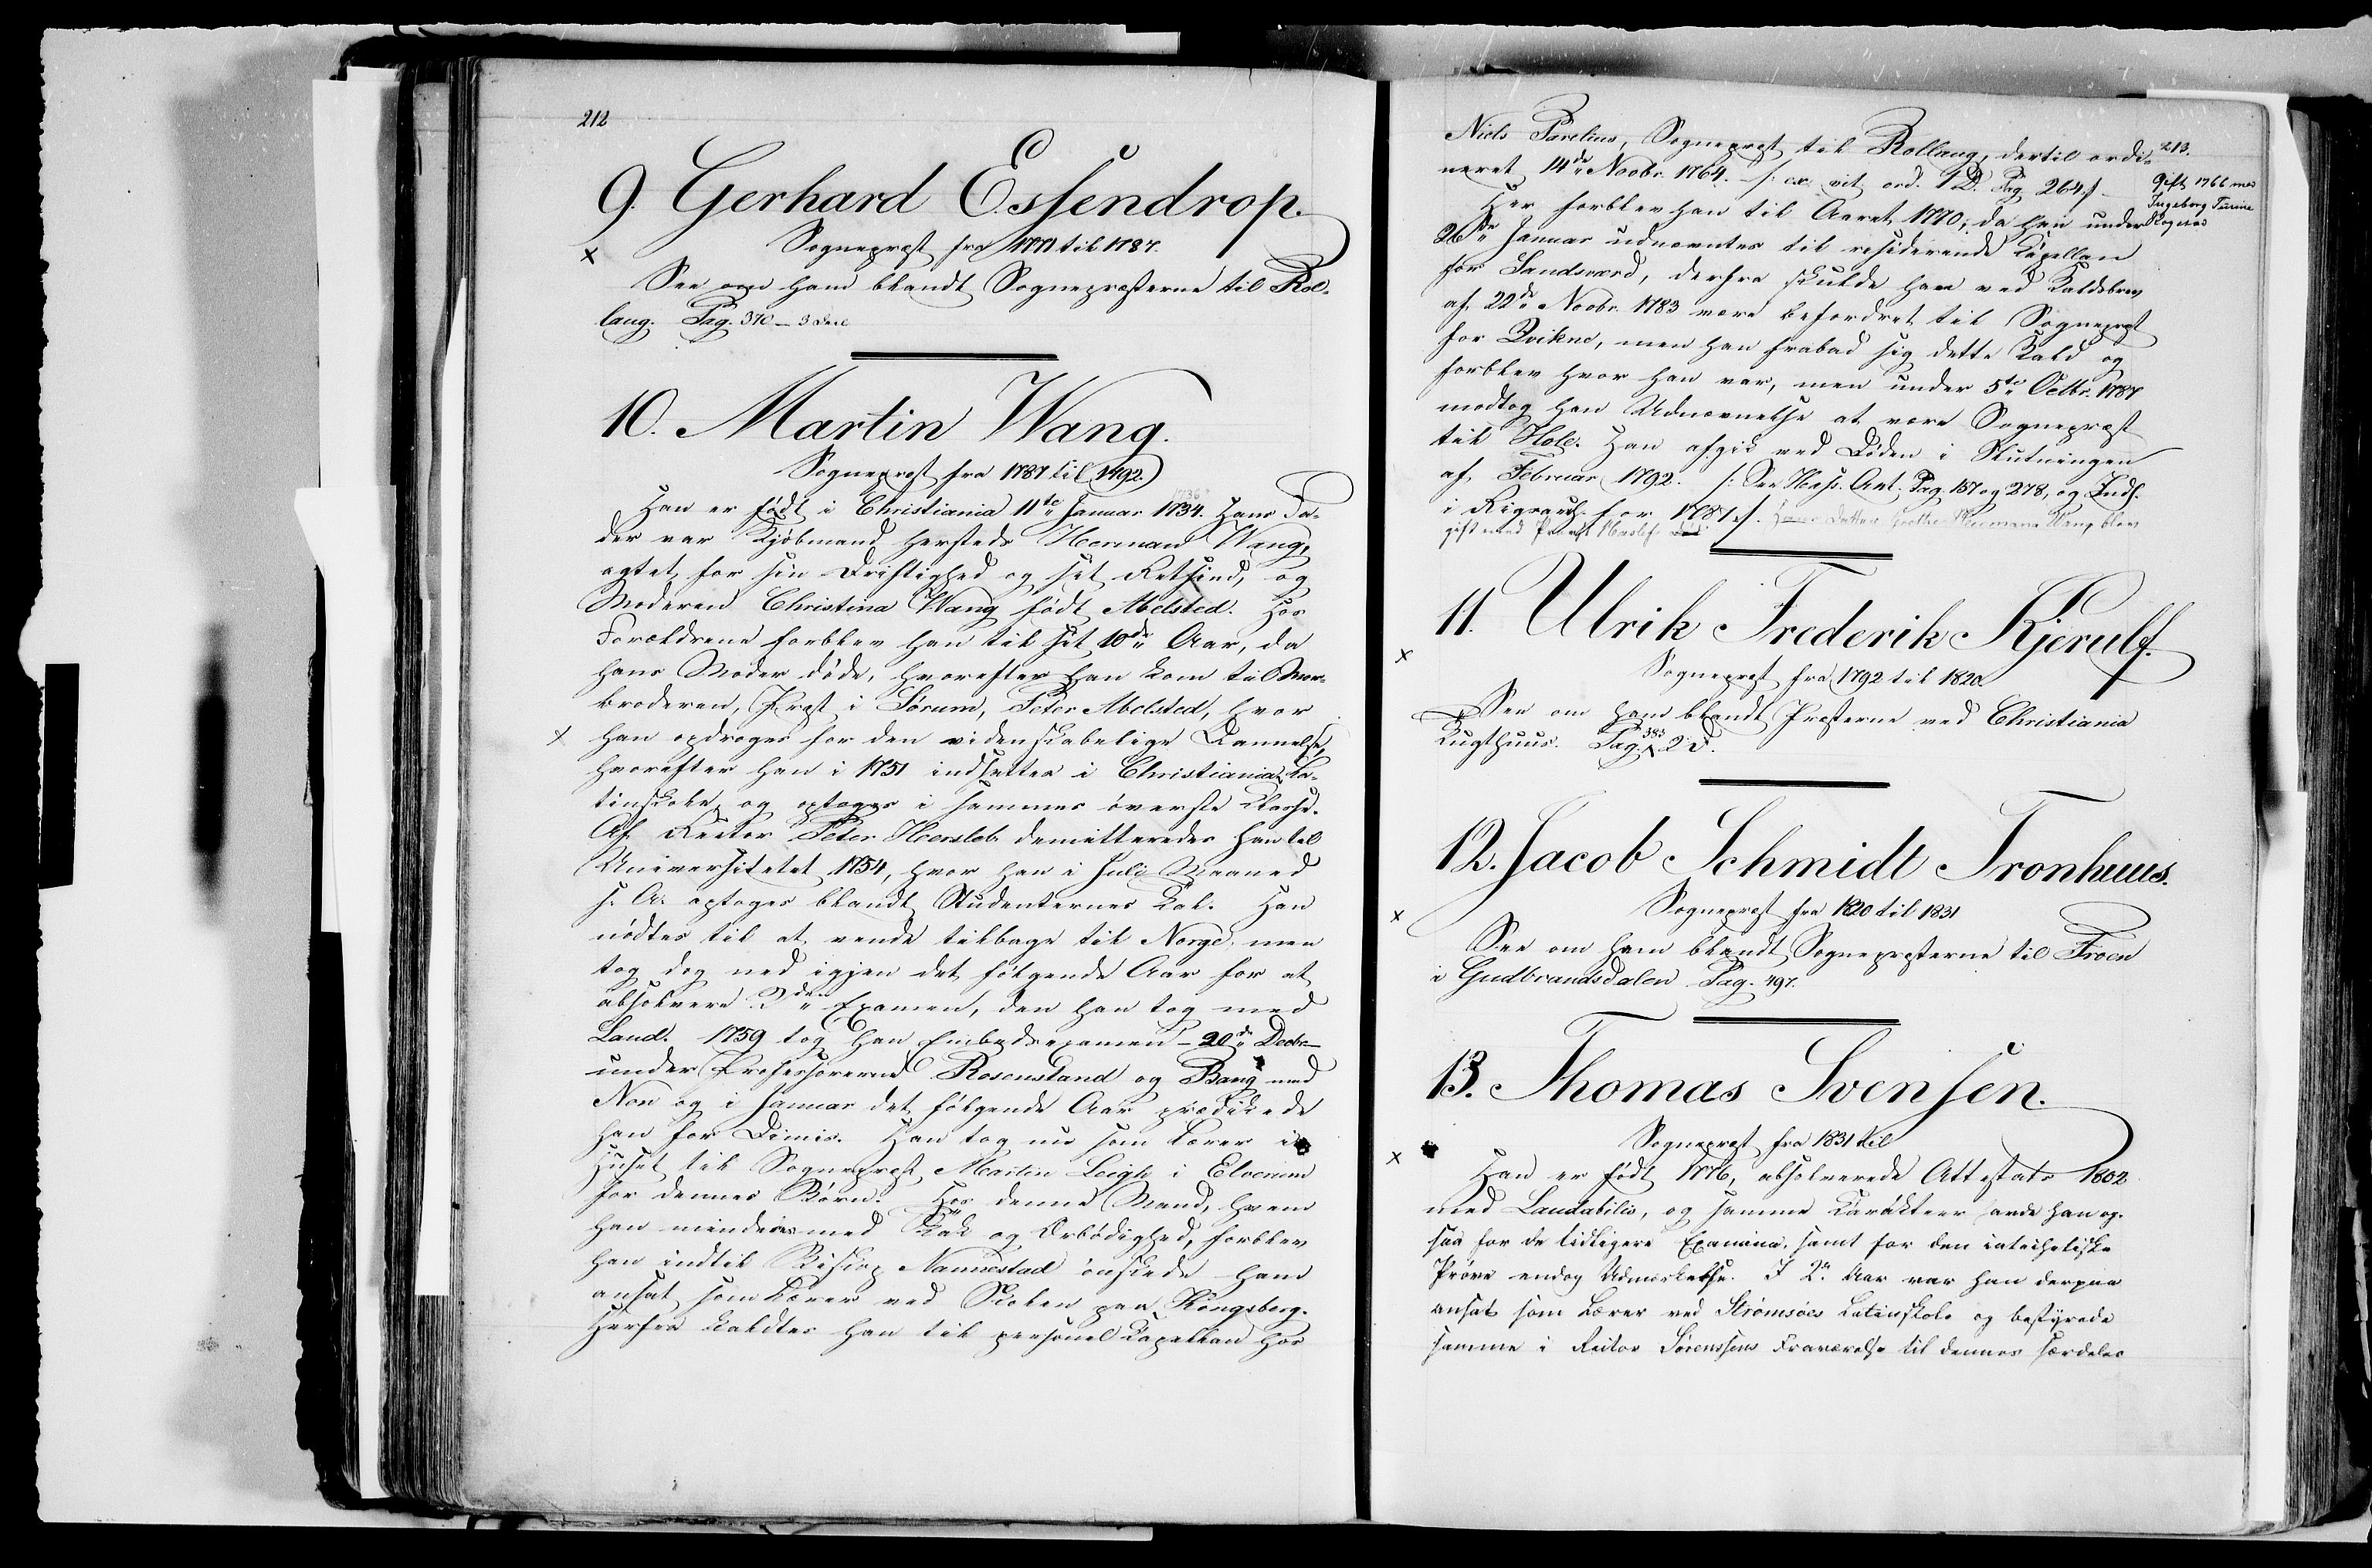 212
9. Gerhard Essendrop.
Sognepræst fra 1771 til 1787.
See om ham blandt Sognepræsterne til Rol-
laug. Pag. 370 – 3 Deel
10. Martin Wang.
Sognepræst fra 1787 til 1792.
1736?
Han er født i Christiania 11te Januar 1734. Hans Fa-
der var Kjøbmand hersteds Herman Wang,
agtet for sin Driftighed og sit Retsind, og
Moderen Christina Wang født Abelsted. Hos
Forældrene forblev han til sit 10de Aar, da
hans Moder døde, hvorefter han kom til Mor-
broderen, Præst i Sørum, Peter Abelsted, hvor
han opdroges for den videnskabelige Dannelse,
hvorefter han i 1751 indsættes i Christiania La-
tinskole og optages i sammes øverste Classe.
Af Rector Peter Hersleb demitteredes han til
Universitetet 1754, hvor han i Juli Maaned
s. A. optoges blandt Studenternes Tal. Han
nødtes til at vende tilbage til Norge, men
tog dog ned igjen det følgende Aar for at
absolvere 2den Examen, den han tog med
Laud. 1759 tog han Embedsexamen – 20de Decbr –
under Professorerne Rosenstand og Bang med
Non og i Januar det følgende Aar prædikede
han for Dimis. Han tog nu som Lærer i
Huset til Sognepræst Martin Leigh i Elverum
for dennes Børn. Hos denne Mand, hvem
han mindes med Tak og Ærbødighed, forblev
han indtil Biskop Nannestad ønskede ham
ansat som Lærer ved Skolen paa Kongsberg.
Herfra kaldtes han til personel Kapellan hos
213.
Niels Parelius, Sognepræst til Rollaug, dertil ordi-
neret 14de Novbr. 1764. /: ex. vit. ord. 1 D. Pag. 264 :/
Gift 1766 med
Ingeborg Turine
Her forblev han til Aaret 1770, da han under
26de Januar udnævntes til residerende Kapellan
for Sandsværd, derfra skulde han ved Kaldsbrev
af 22de Novbr. 1783 være befordret til Sognepræst
for Qvikne, men han frabad sig dette Kald og
forblev hvor han var, men under 5te Octbr. 1787
modtog han Udnævnelse at være Sognepræst
til Hole. Han afgik ved Døden i Slutningen
af Februar 1792. /: See Hess. Ant. Pag. 157 og 278, og Inds.
i for 1787 :/. Hans Datter Hermana Wang blev
gift med
11. Ulrik Frederik Kjerulf.
Sognepræst fra 1792 til 1820.
See om ham blandt Præsterne ved Christiania
Tugthuus. Pag. 383 2 D.
12. Jacob Schmidt Tronhuus.
Sognepræst fra 1820 til 1831
See om ham blandt Sognepræsterne til Froen
i Gudbrandsdalen Pag. 497.
13. Thomas Svensen.
Sognepræst fra 1831 til
Han er født 1776, absolverede Attestats 1802
med Laudabilis, og samme Karakteer havde han og-
saa for de tidligere Examina, samt for den catechetiske
Prøve endog Udmærkelse. I 2 Aar var han derpaa
ansat som Lærer ved Strømsøes Latinskole og bestyrede
samme i Rector Sørenssens Fraværelse til dennes særdeles